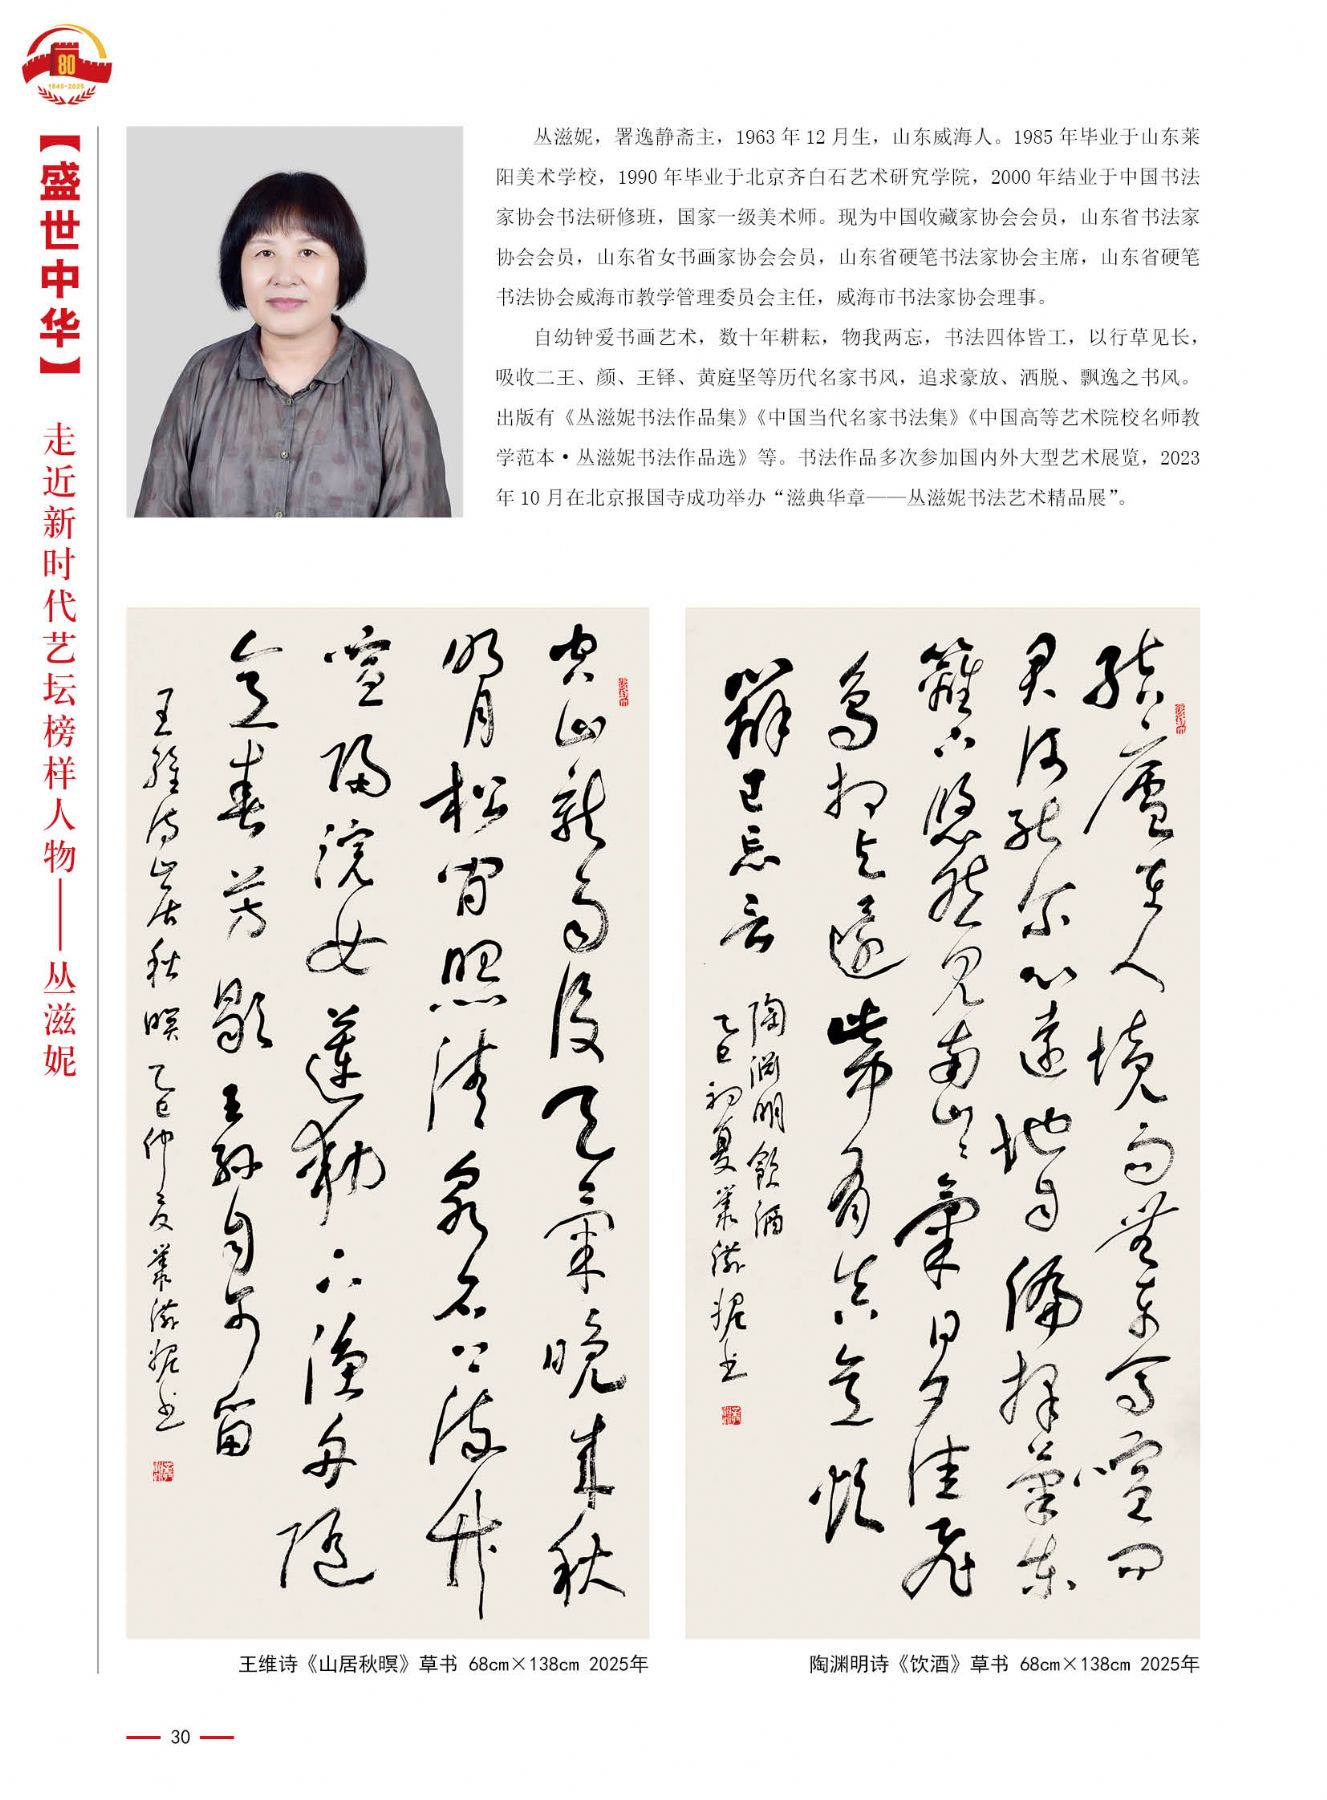 80
1945-2025
【盛世中华】
走近新时代艺坛榜样人物——丛滋妮
丛滋妮，署逸静斋主，1963年12月生，山东威海人。1985年毕业于山东莱
阳美术学校，1990年毕业于北京齐白石艺术研究学院，2000年结业于中国书法
家协会书法研修班，国家一级美术师。现为中国收藏家协会会员，山东省书法家
协会会员，山东省女书画家协会会员，山东省硬笔书法家协会主席，山东省硬笔
书法协会威海市教学管理委员会主任，威海市书法家协会理事。
自幼钟爱书画艺术，数十年耕耘，物我两忘，书法四体皆工，以行草见长，
吸收二王、颜、王铎、黄庭坚等历代名家书风，追求豪放、洒脱、飘逸之书风。
出版有《丛滋妮书法作品集》《中国当代名家书法集》《中国高等艺术院校名师教
学范本·丛滋妮书法作品选》等。书法作品多次参加国内外大型艺术展览，2023
年10月在北京报国寺成功举办“滋典华章——丛滋妮书法艺术精品展”。
空山新雨後天氣晚来秋
明月松間照清泉石上流竹
喧歸浣女蓮動下漁舟隨
意春芳歇王孫自可留
王維诗山居秋暝乙巳仲夏叢滋妮书
王维诗《山居秋暝》草书 68cm×138cm 2025年
結廬在人境而無車馬喧問
君何能尔心遠地自偏採菊東
籬下悠然見南山山氣日夕佳飛
鳥相与還此中有真意欲
辯已忘言
陶淵明飲酒
乙巳初夏叢滋妮书
陶渊明诗《饮酒》草书 68cm×138cm 2025年
30